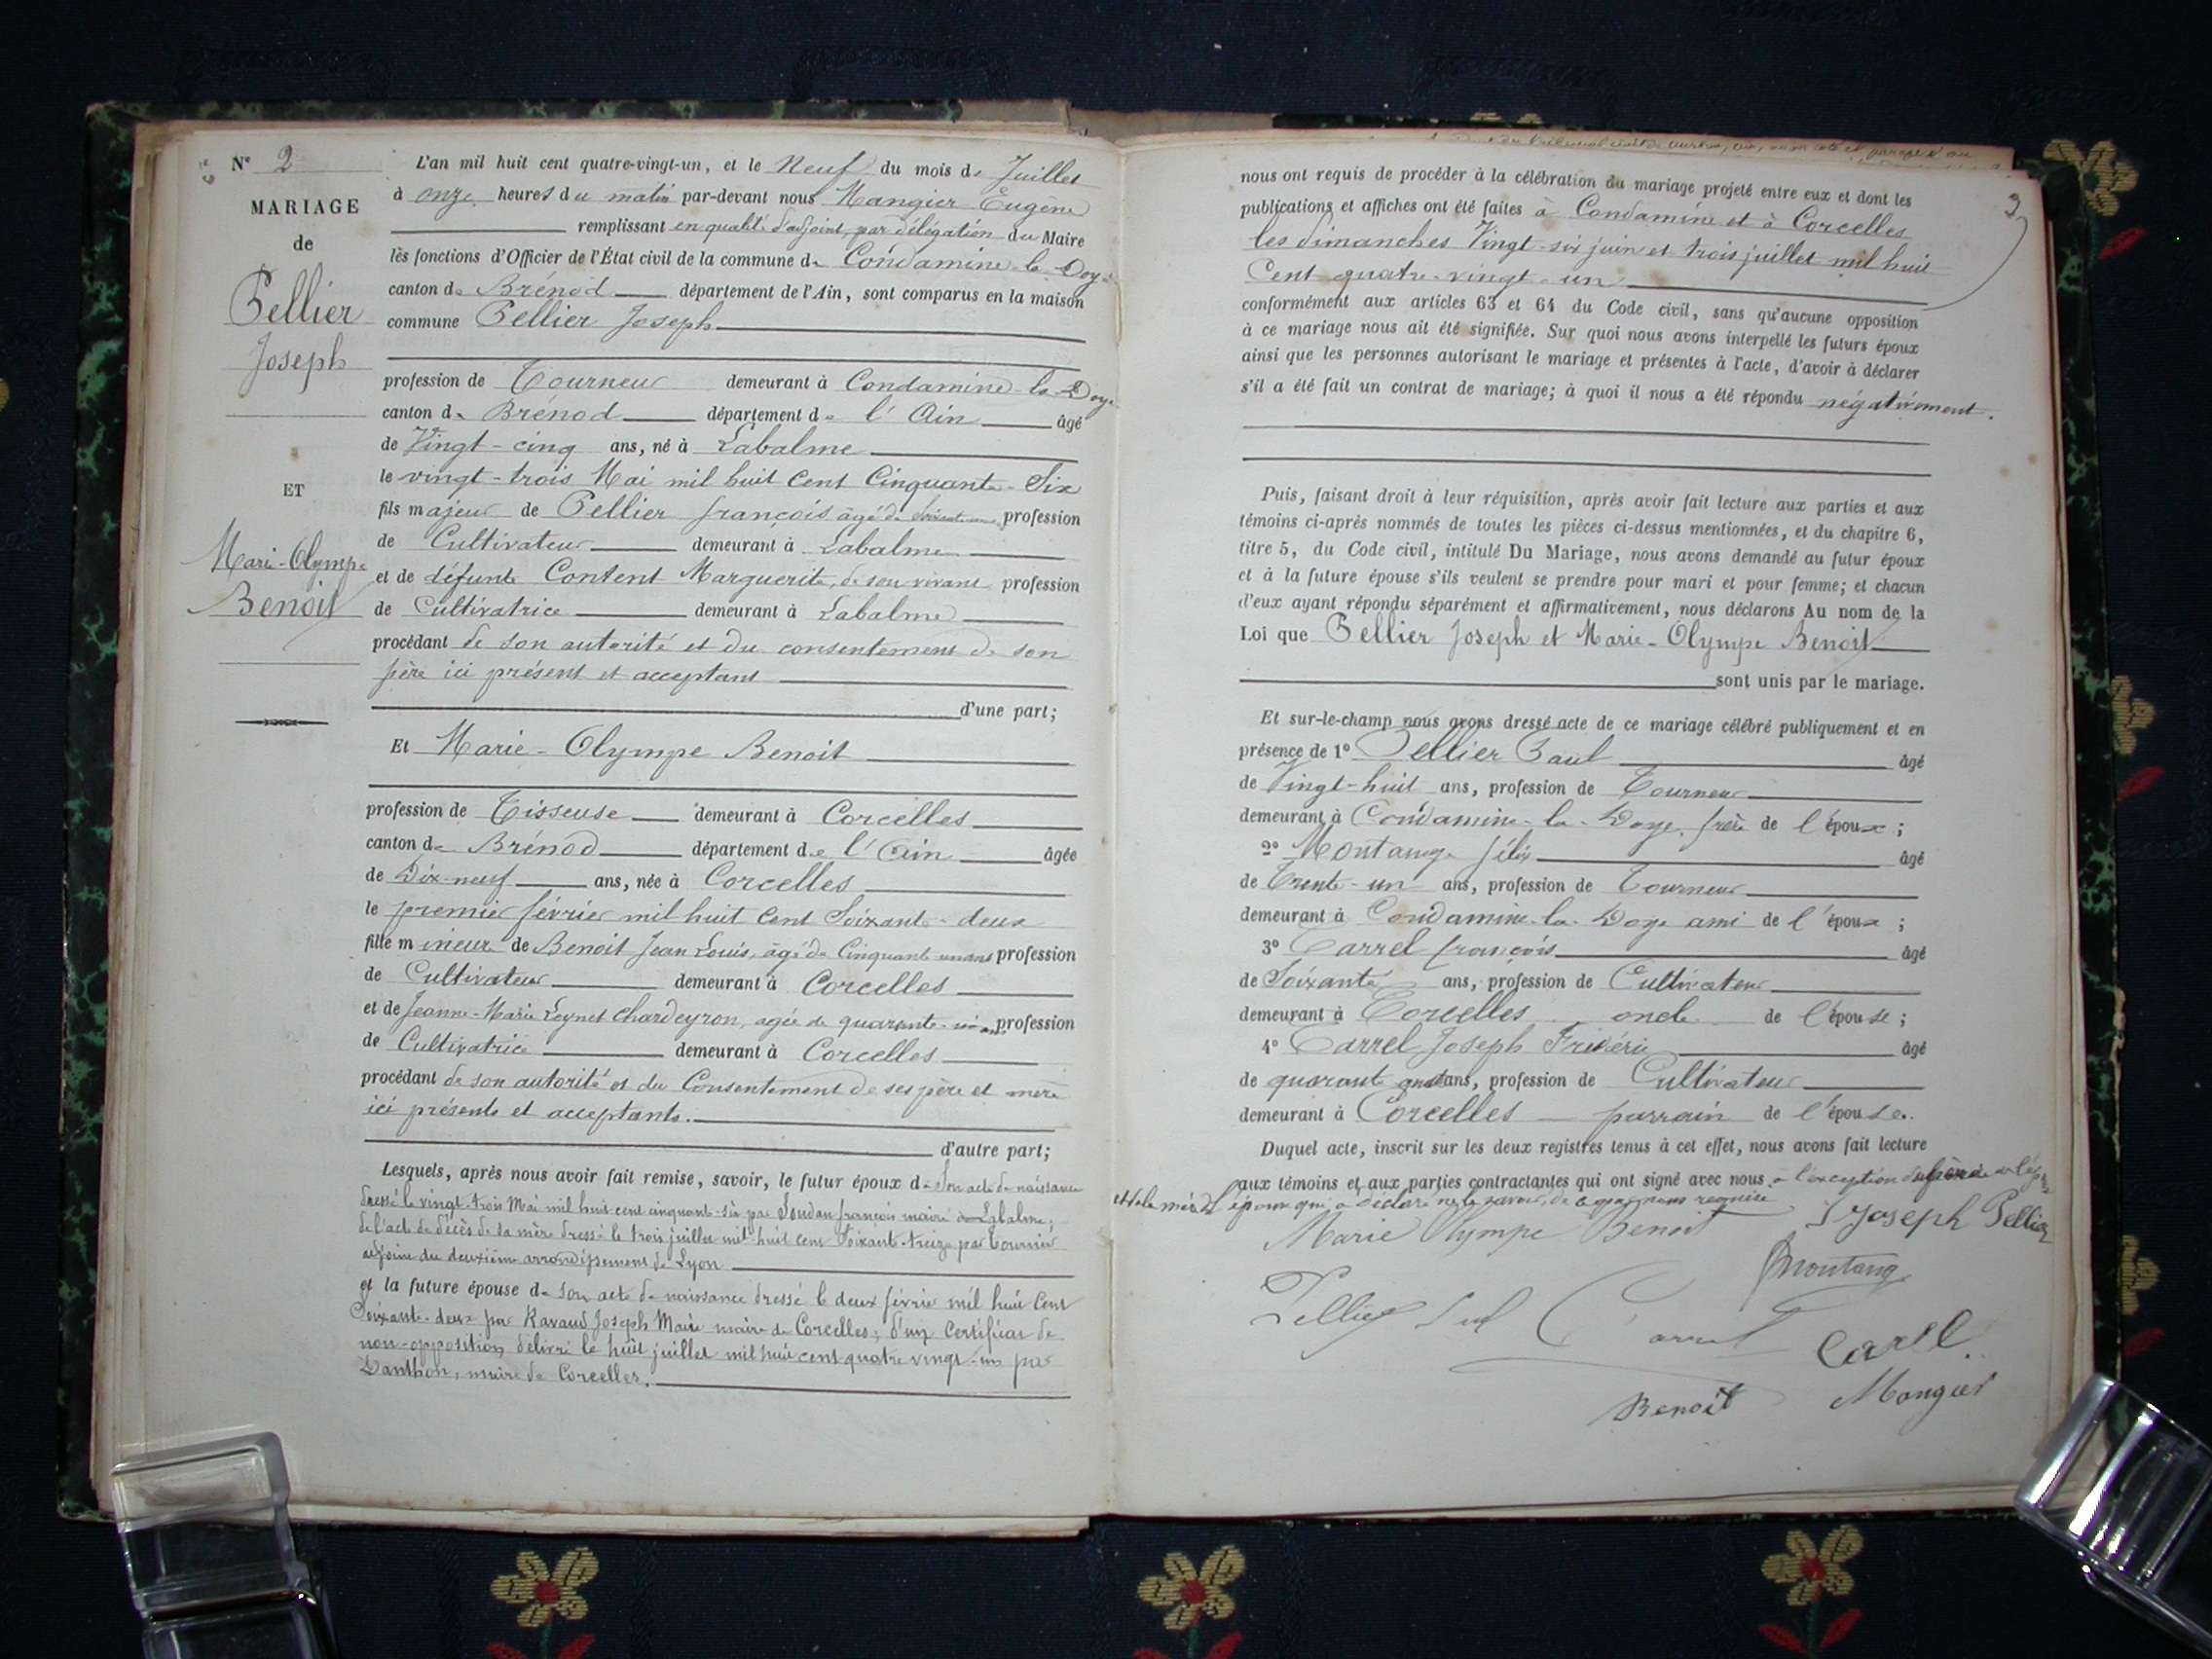 N° 2
MARIAGE
de
Pellier
Joseph
ET
Marie-Olympe
Benoit
L'an mil huit cent quatre-vingt-un, et le Neuf du mois de Juillet
à onze heures du matin par-devant nous Mangier Eugène
remplissant en qualité d'adjoint, par délégation du Maire
les fonctions d'Officier de l'État civil de la commune de Condamine-la-Doye
canton de Brénod département de l'Ain, sont comparus en la maison
commune Pellier Joseph
profession de Tourneur demeurant à Condamine-la-Doye
canton de Brénod département de l'Ain âgé
de Vingt-cinq ans, né à Labalme
le vingt-trois Mai mil huit cent Cinquante-Six
fils majeur de Pellier françois âgé de profession
de Cultivateur demeurant à Labalme
et de défunte Content Marguerite, de son vivant profession
de Cultivatrice demeurant à Labalme
procédant de son autorité et du consentement de son
père ici présent et acceptant
d'une part;
Et Marie-Olympe Benoit
profession de Tisseuse demeurant à Corcelles
canton de Brénod département de l'Ain âgée
de Dix-neuf ans, née à Corcelles
le premier février mil huit cent Soixante-deux
fille mineure de Benoit Jean Louis, âgé de Cinquante unans profession
de Cultivateur demeurant à Corcelles
et de Jeanne-Marie Leynet Chardeyron, agée de quarante- profession
de Cultivatrice demeurant à Corcelles
procédant de son autorité et du Consentement de ses père et mère
ici présents et acceptants.
d'autre part;
Lesquels, après nous avoir fait remise, savoir, le futur époux de Son acte de naissance
dressé le vingt-trois Mai mil huit cent cinquante-six par Soudan françois maire de Labalme;
de l'acte de décès de sa mère dressé le trois juillet mil huit cent Soixante-treize par Tournier
adjoint du deuxième arrondissement de Lyon
et la future épouse de Son acte de naissance dressé le deux février mil huit Cent
Soixante-deux par Ravaud Joseph Marie maire de Corcelles; d'un Certificat de
non-opposition délivré le huit juillet mil huit cent quatre vingt-un par
Danthon, maire de Corcelles.
nous ont requis de procéder à la célébration du mariage projeté entre eux et dont les
publications et affiches ont été faites à Condamine et à Corcelles
les dimanches Vingt-six juin et trois juillet mil huit
Cent quatre-vingt-un
conformément aux articles 63 et 64 du Code civil, sans qu'aucune opposition
à ce mariage nous ait été signifiée. Sur quoi nous avons interpellé les futurs époux
ainsi que les personnes autorisant le mariage et présentes à l'acte, d'avoir à déclarer
s'il a été fait un contrat de mariage; à quoi il nous a été répondu négativement.
Puis, faisant droit à leur réquisition, après avoir fait lecture aux parties et aux
témoins ci-après nommés de toutes les pièces ci-dessus mentionnées, et du chapitre 6,
titre 5, du Code civil, intitulé Du Mariage, nous avons demandé au futur époux
et à la future épouse s'ils veulent se prendre pour mari et pour femme; et chacun
d'eux ayant répondu séparément et affirmativement, nous déclarons Au nom de la
Loi que Pellier Joseph et Marie-Olympe Benoit
sont unis par le mariage.
Et sur-le-champ nous avons dressé acte de ce mariage célébré publiquement et en
présence de 1° Pellier Paul âgé
de Vingt-huit ans, profession de Tourneur
demeurant à Condamine-la-Doye, frère de l'époux;
2° Montange félix âgé
de Trente-un ans, profession de Tourneur
demeurant à Condamine-la-Doye ami de l'époux;
3° Carrel françois âgé
de Soixante ans, profession de Cultivateur
demeurant à Corcelles oncle de l'épouse;
4° Carrel Joseph Frédéric âgé
de quarante ans, profession de Cultivateur
demeurant à Corcelles parrain de l'épouse.
Duquel acte, inscrit sur les deux registres tenus à cet effet, nous avons fait lecture
aux témoins et aux parties contractantes qui ont signé avec nous à l'exception
l'épouse qui a déclaré ne le savoir, de ce requise
Marie Olympe Benoit
Joseph Pellier
Montange
Pellier Paul
Carrel
Carel
Benoit
Mangier